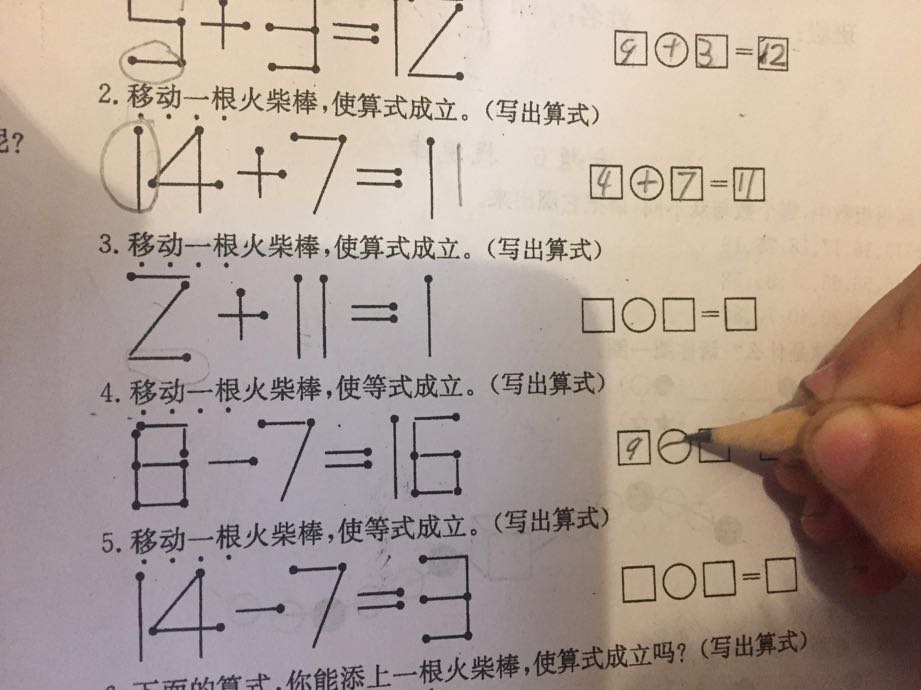 9+3=12 9+3=12
2. 移动一根火柴棒,使算式成立。(写出算式)
14+7=11 4+7=11
3. 移动一根火柴棒,使算式成立。(写出算式)
Z+11=1 □○□=□
4. 移动一根火柴棒,使等式成立。(写出算式)
8-7=16 9-
5. 移动一根火柴棒,使等式成立。(写出算式)
14-7=3 □○□=□
下面的算式,你能添上一根火柴棒,使算式成立吗?(写出算式)